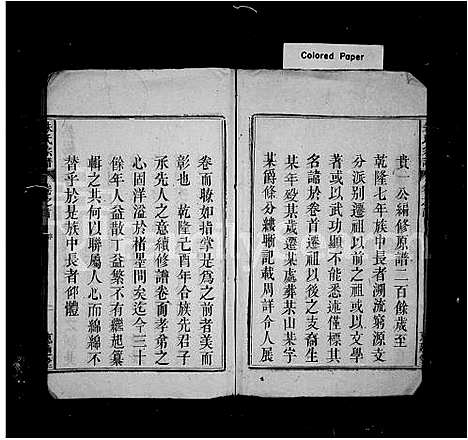 Colored Paper
貴一公編修原譜二百餘歲至
乾隆七年族中長者溯流窮源支
分派別遷祖以前或以文學
著或以武功顯不能悉述僅標其
名諱於卷首遷祖以後之支裔生
某年殁某歲遷某處葬某山某字
某爵條分縷晰記載周詳令人展
卷而瞭如指掌是為之前者美而
彰也 乾隆己酉年合族先君子
承先人之意續修譜卷而孝弟之
心固洋溢於楮墨間矣迄今三十
餘年人益散丁益繁不有繼起纂
輯之其何以聯屬人心而綿綿不
替乎於是族中長者仰體